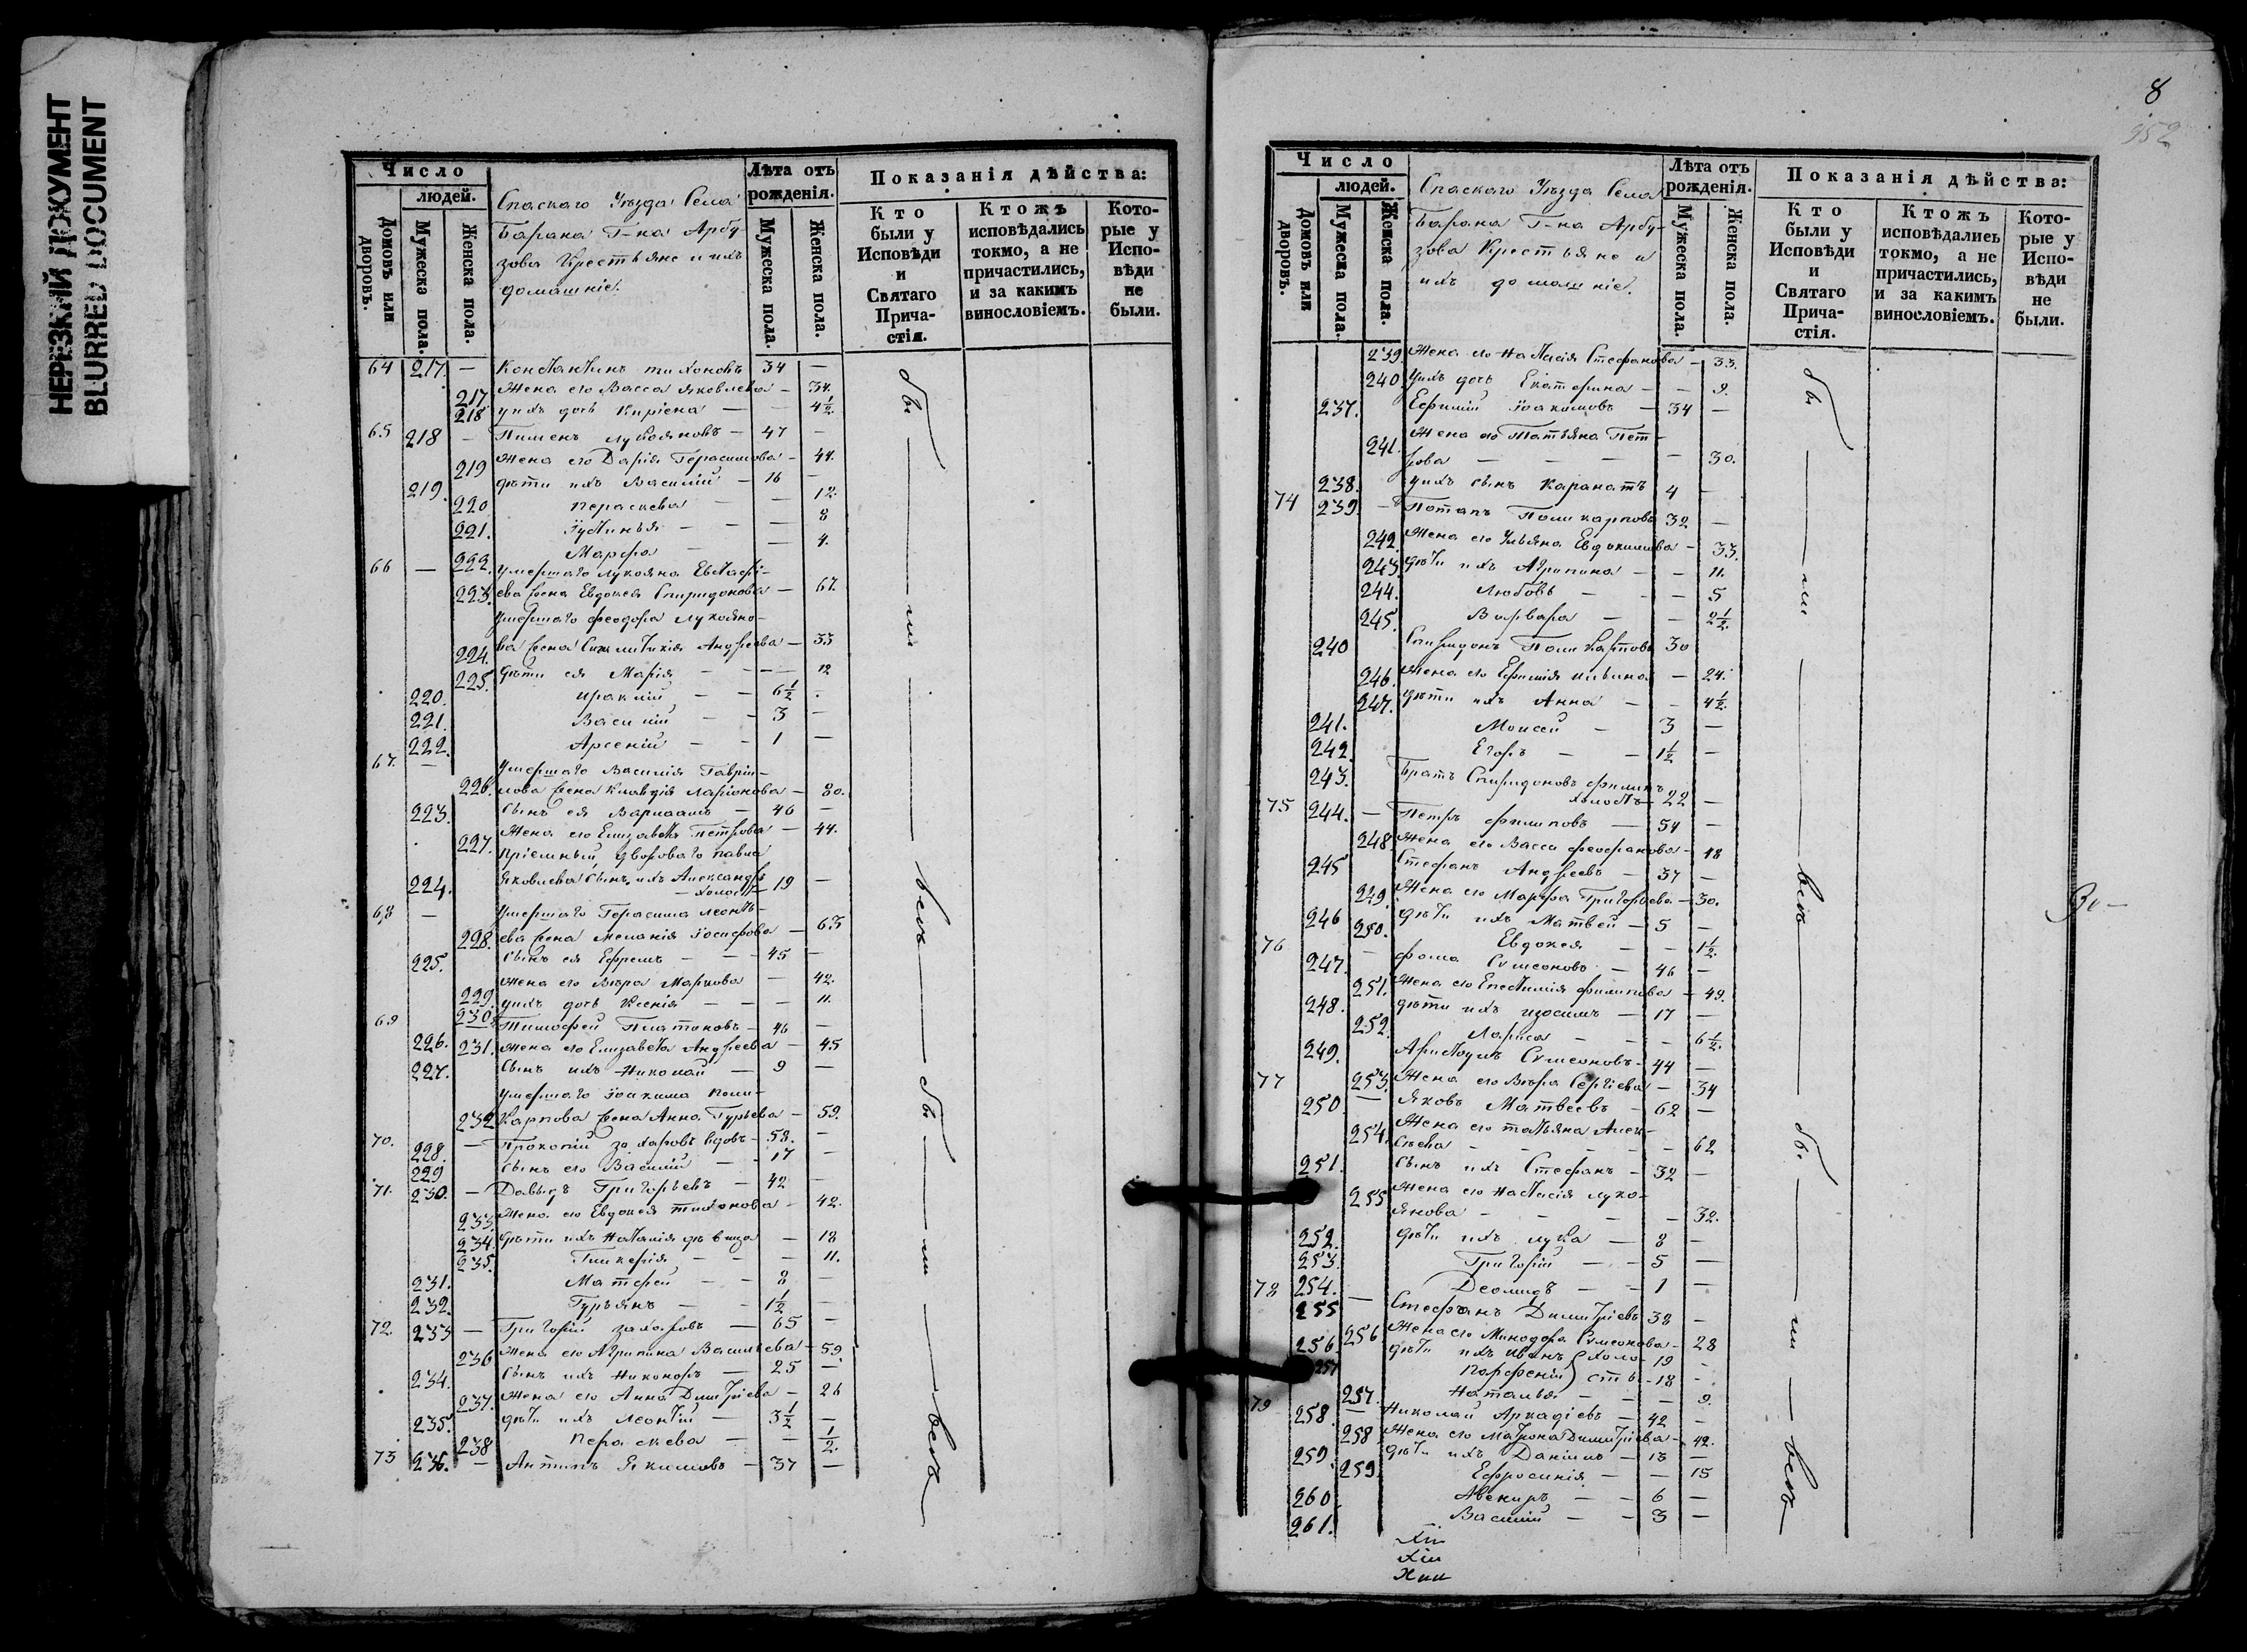 НЕРЕЗКИЙ ДОКУМЕНТ
BLURRED DOCUMENT
Число
людей.
Домовъ или дворовъ.
Мужеска пола.
Женска пола.
Спаскаго Уѣзда Села
Барана Г-на Арбу-
зова Крестьяне и ихъ
домашніе.
Лѣта отъ рожденія.
Мужеска пола.
Женска пола.
Показанія дѣйства:
Кто были у Исповѣди и Святаго Прича-стія.
Ктожъ исповѣдались токмо, а не причастились, и за какимъ винословіемъ.
Кото-рые у Испо-вѣди не были.
64 217. — Константинъ Тихоновъ 34 —
217. Жена его Васса Яковлева — 34.
218 ихъ дочь Кирiена — — 4½.
65 218 — Пименъ Лукояновъ — 47 —
219 Жена его Дарія Герасимова — 44.
219. дѣти ихъ Василій — 16 —
220 Параскева — — 12.
221. Іустинья — — — 8
222. Марфа — — 4.
66 — умершаго Лукояна Евстафі-
223. ева жена Евдокея Спиридонова — 67.
умершаго Феодора Лукояно-
224. ва жена Синклитикія Андреева — 33
225. дѣти ея Марія — — — 12
220. Ираклій — — 6½ .
221. Василій — — 3 —
222. Арсеній — — 1 —
67. — Умершаго Василія Гаврии-
226. лова жена Клавдія Ларіонова — 80.
223. Сынъ ея Варлаамъ — 46 —
227. Жена его Елизавета Петрова — 44.
Пріемный двороваго Павла
224. Яковлева Сынъ ихъ Александръ
— холостъ — 19 —
68 — Умершаго Герасима Леонть-
228. ева жена Меланія Іосифова — 63
225. Сынъ ея Ефремъ — — 45 —
229. Жена его Вѣра Маркова — 42.
230. ихъ дочь Ксенія — — — 11.
69 226. — Тимофей Платоновъ — 46 —
231. Жена его Елизавета Андреева — 45
227. Сынъ ихъ Николай — 9 —
умершаго Іоакима Поли-
232 карпова жена Анна Гурьева — 59.
70. 228. — Прокопій Захаровъ вдовъ — 58. —
229 Сынъ его Василій — 17 —
71. 230. — Давыдъ Григорьевъ — 42 —
233. Жена его Евдокея Тихонова — 42.
234. дѣти ихъ Наталія дѣвица — 18
235. Гликерія — — — 11.
231. Матфей — — 8 —
232. Гурьянъ — — 1½ —
72. 233 — Григорій Захаровъ — 65 —
236 Жена его Агрипина Васильева — 59.
234. Сынъ ихъ Никоноръ — 25 —
237. Жена его Анна Димитріева — 26
235. дѣти ихъ Леонтій — 3½ —
238 Пераскева — — ½.
73 236. — Антипъ Якимовъ — 37 —
бы — ли — всѣ — бы — ли — всѣ
8
952
Число
людей.
Домовъ или дворовъ.
Мужеска пола.
Женска пола.
Спаскаго Уѣзда Села
Барана Г-на Арбу-
зова Крестьяне и
ихъ домашніе.
Лѣта отъ рожденія.
Мужеска пола.
Женска пола.
Показанія дѣйства:
Кто были у Исповѣди и Святаго Прича-стія.
Ктожъ исповѣдались токмо, а не причастились, и за какимъ винословіемъ.
Кото-рые у Испо-вѣди не были.
239. Жена его Настасія Стефанова — 33.
240. ихъ дочь Екатерина — — 9.
237. Ефимій Іоакимовъ — 34 —
241. Жена его Татьяна Пет-
рова — — — — 30.
238. ихъ сынъ Харалатъ 4 —
74 239. — Потапъ Поликарповъ 32 —
242. Жена его Ульяна Евдокимова — 33.
243. дѣти ихъ Агрипина — — 11.
244. Любовь — — — 5
245. Варвара — — 2½.
240 Спиридонъ Поликарповъ 30
246. Жена его Ефимія Ильина — 24.
247. дѣти ихъ Анна — — 4½.
241. Моисей — 3 —
242. Егоръ — — 1½ —
243. Братъ Спиридоновъ Филипъ
холостъ — 22 —
75 244. — Петръ Филиповъ — 54 —
248. Жена его Васса Феофанова — 48
245 Стефанъ Андреевъ — 37 —
249. Жена его Марфа Григорьева — 30.
246 дѣти ихъ Матвей — 5 —
250. Евдокея — — 1½.
76 247. — Фома Симеоновъ — 46 —
251. Жена его Епестимія Филипова — 49.
248. дѣти ихъ Изосимъ — 17 —
252. Лариса — — — 6½.
249. Аристархъ Симеоновъ — 44 —
253. Жена его Вѣра Сергіева — 34
77 250 — Яковъ Матвеевъ — 62 —
254. Жена его Татьяна Алек-
сѣева — — — — 62
251. Сынъ ихъ Стефанъ — 32 —
255 Жена его Настасія Луко-
янова — — — — 32.
252. дѣти ихъ Лука — 8 —
253. Григорій — — 5 —
254. Деомидъ — — 1 —
78 255 — Стефанъ Димитріевъ 38 —
256 Жена его Минодора Симеонова — 28
256. дѣти ихъ Иванъ } холо- 19 —
257 Парфеній } сты — 18 —
257. Наталья — — — 9.
79 258. — Николай Аркадіевъ — 42 —
258 Жена его Матрона Димитріева — 42.
259. дѣти ихъ Даніилъ — 13 —
259. Ефросинія — — 15
260 Авениръ — — 6 —
261. Василій — — 3 —
бы — ли — всѣ — бы — ли — всѣ